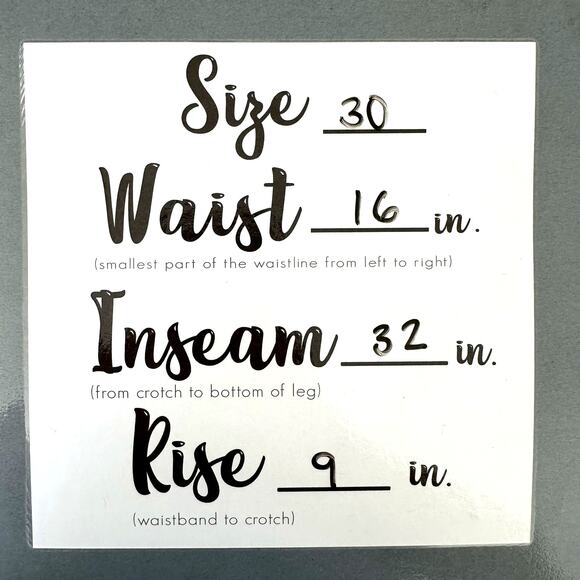 Size 30
Waist 16 in.
(smallest part of the waistline from left to right)
Inseam 32 in.
(from crotch to bottom of leg)
Rise 9 in.
(waistband to crotch)